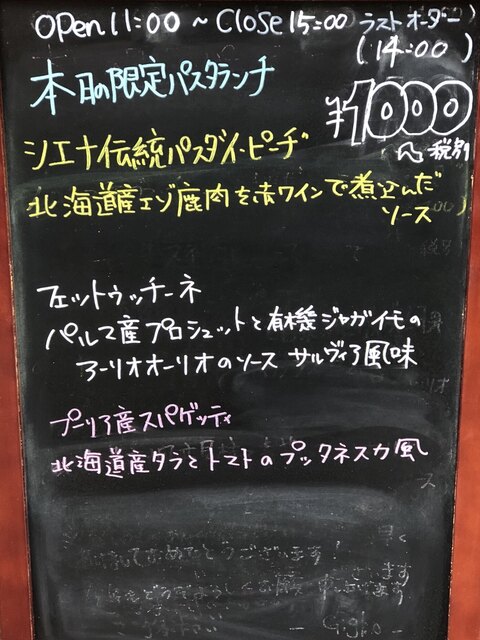 Open 11:00 ~ Close 15:00 ラストオーダー
(14:00)
本日の限定パスタランチ
¥1000
税別
シエナ伝統パスタイ・ピーチ
北海道産エゾ鹿肉を赤ワインで煮込んだ
ソース
フェットゥッチーネ
パルマ産プロシュットと有機ジャガイモの
アーリオオーリオのソース サルヴィア風味
プーリア産スパゲッティ
北海道産タラとトマトのプッタネスカ風